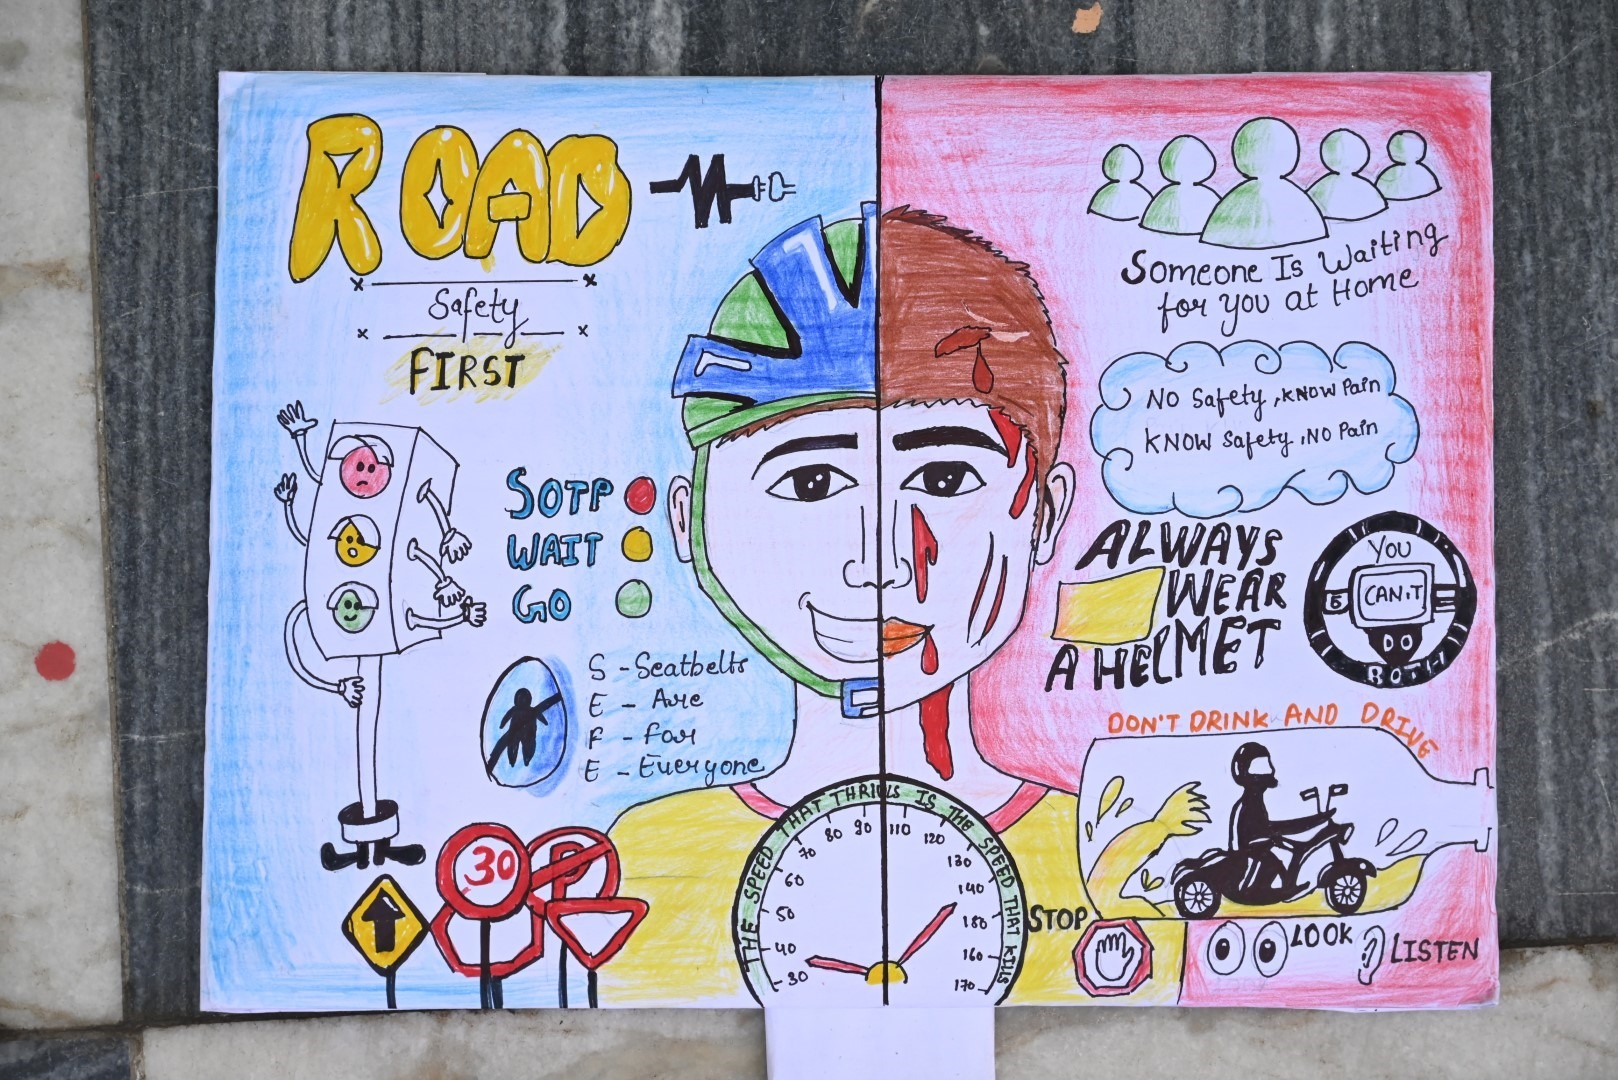 ROAD
Safety
FIRST
SOTP
WAIT
GO
S - Seatbelts
E - Are
F - For
E - Everyone
30
P
THE SPEED THAT THRILLS IS THE SPEED THAT KILLS
30 40 50 60 70 80 90 110 120 130 140 180 160 170
Someone Is Waiting
for you at Home
No Safety, KNOW Pain
KNOW Safety, NO Pain
ALWAYS
WEAR
A HELMET
YOU
CAN'T
BOTH
DON'T DRINK AND DRIVE
STOP
LOOK
LISTEN